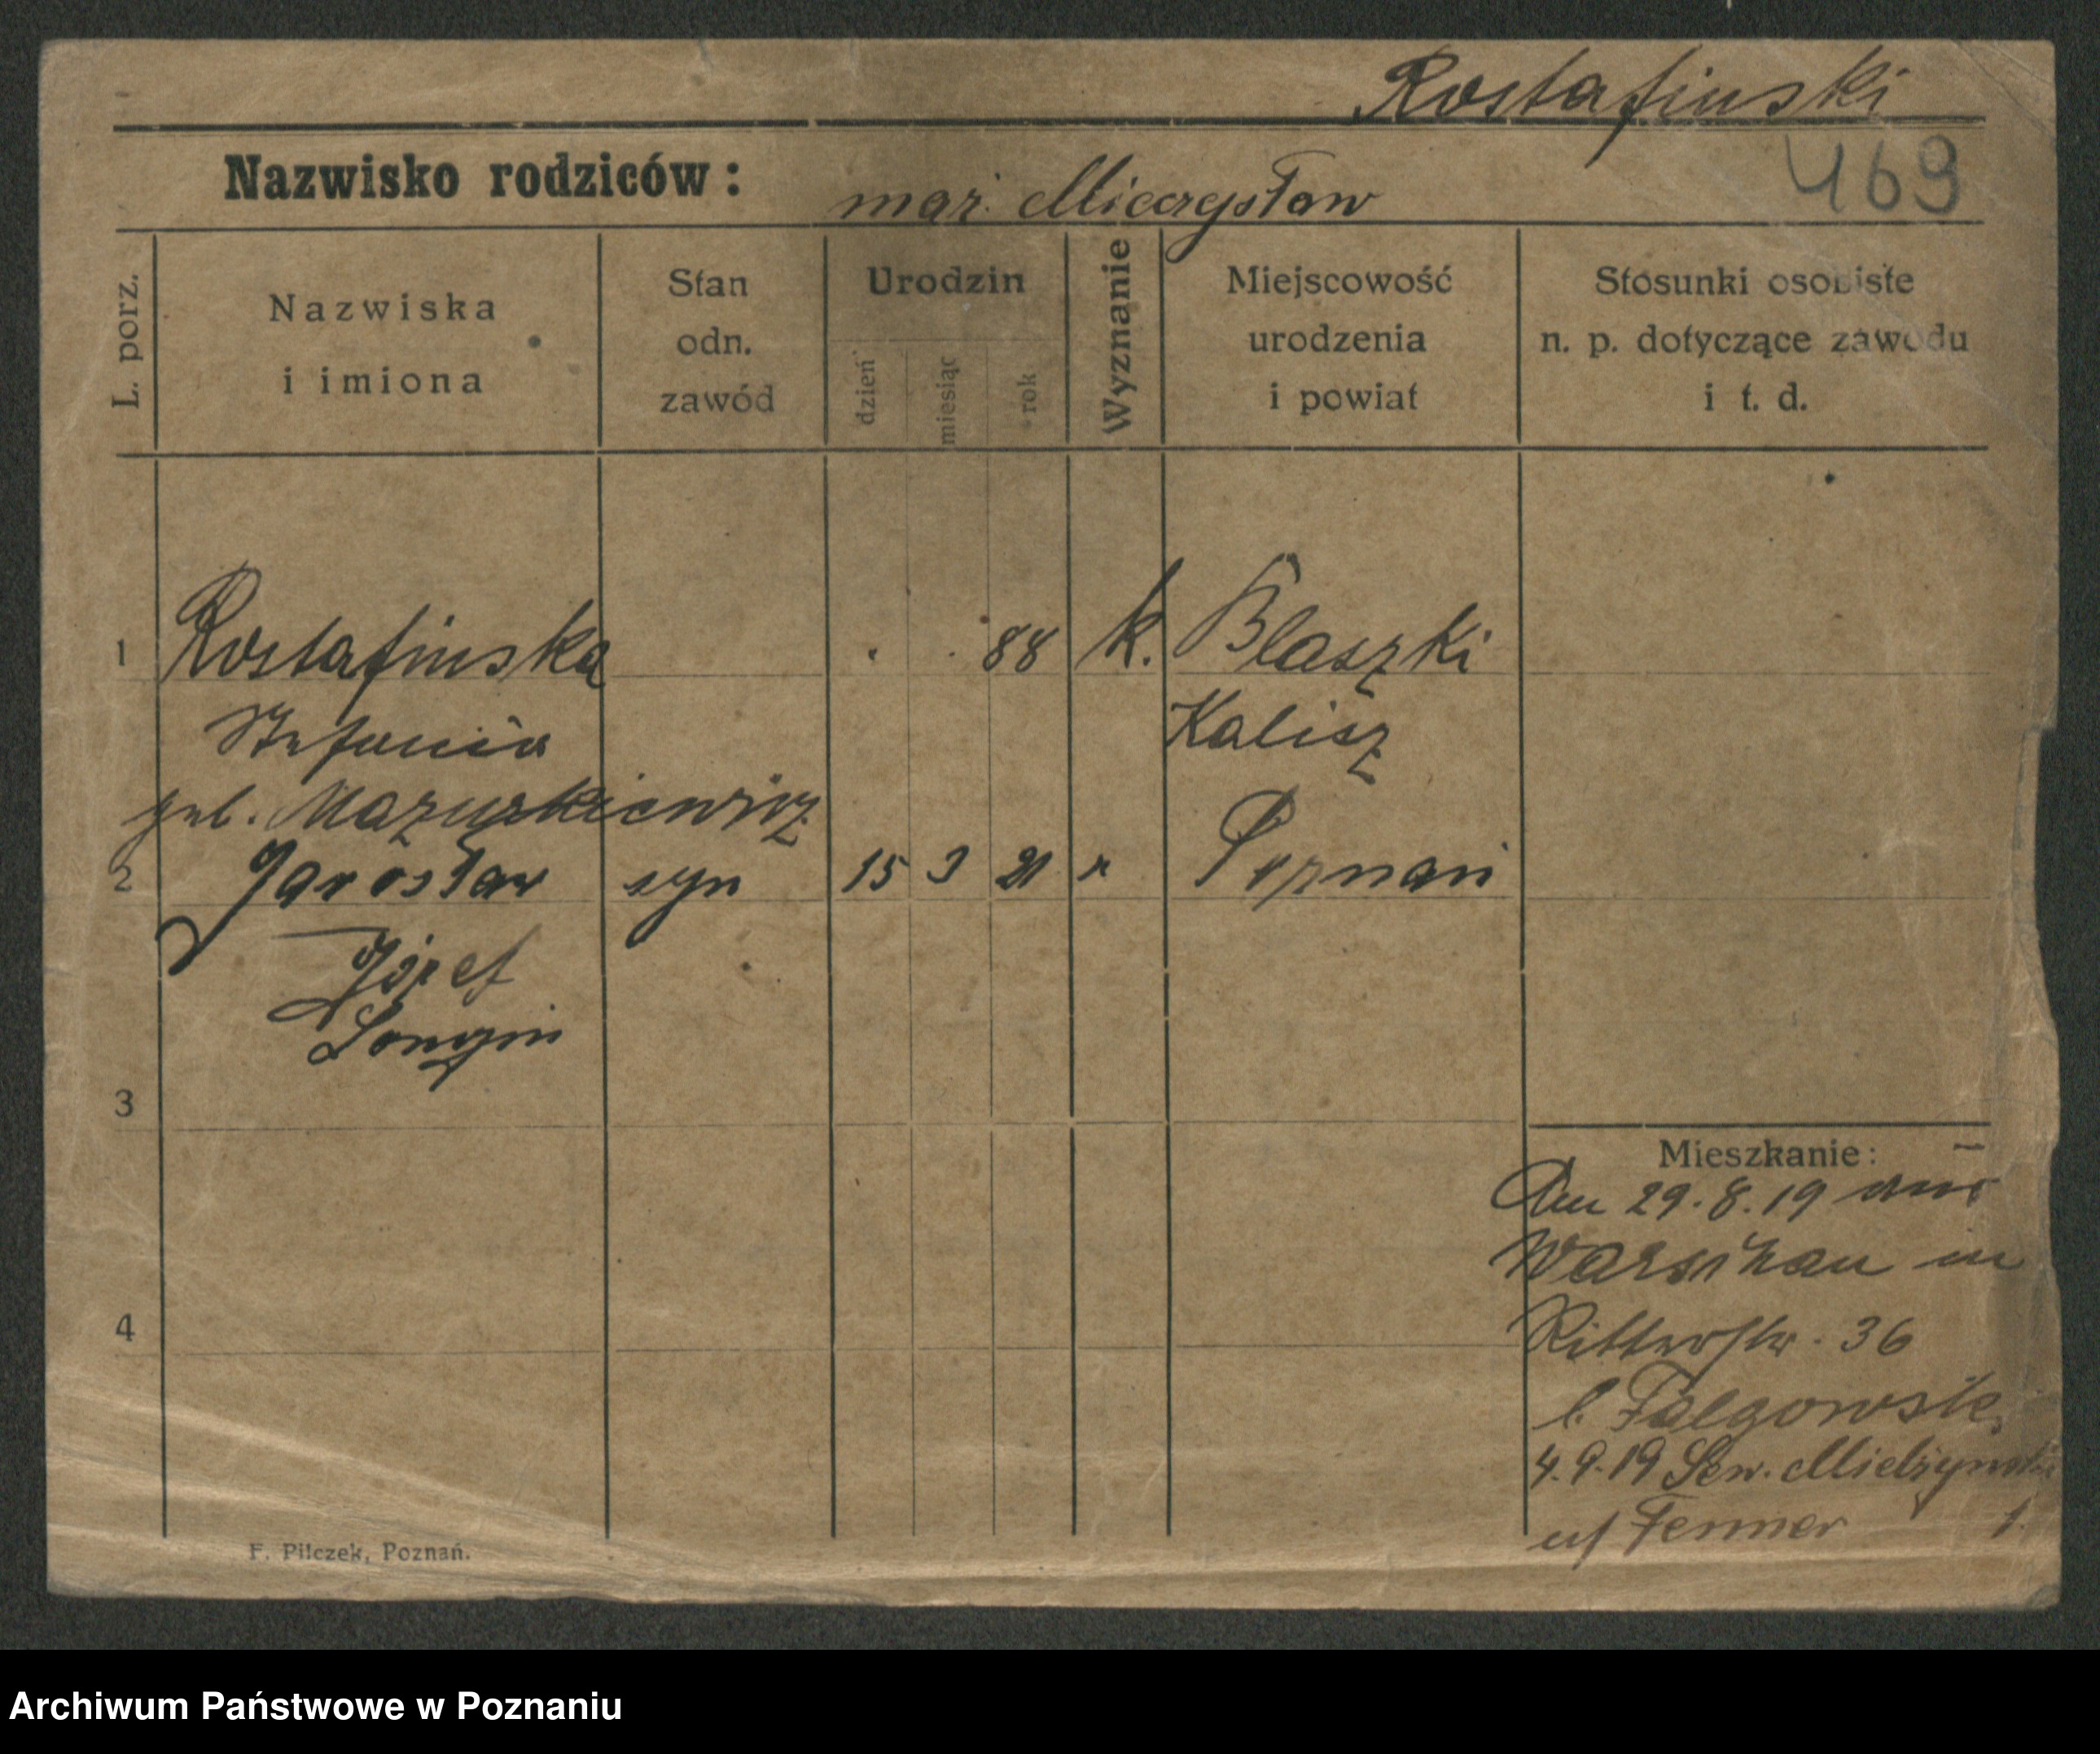 Rostafinski
Nazwisko rodziców: mąż. Mieczysław
469
L. porz.
Nazwiska
i imiona
Stan
odn.
zawód
Urodzin
dzień
miesiąc
rok
Wyznanie
Miejscowość
urodzenia
i powiat
Stosunki osobiste
n. p. dotyczące zawodu
i t. d.
1 Rostafinska . . 88 k. Blaszki
Stefania Kalisz
Mazurkiewicz
2 Jarosław syn 15 3 21 Poznań
Józef
Longin
3
4
Mieszkanie:
Am 29.8.19 aus
Warschau in
Ritterstr. 36
b. Falgowski
4.9.19 Sew. Mielżynski
Fenner
F. Pilczek, Poznań.
Archiwum Państwowe w Poznaniu